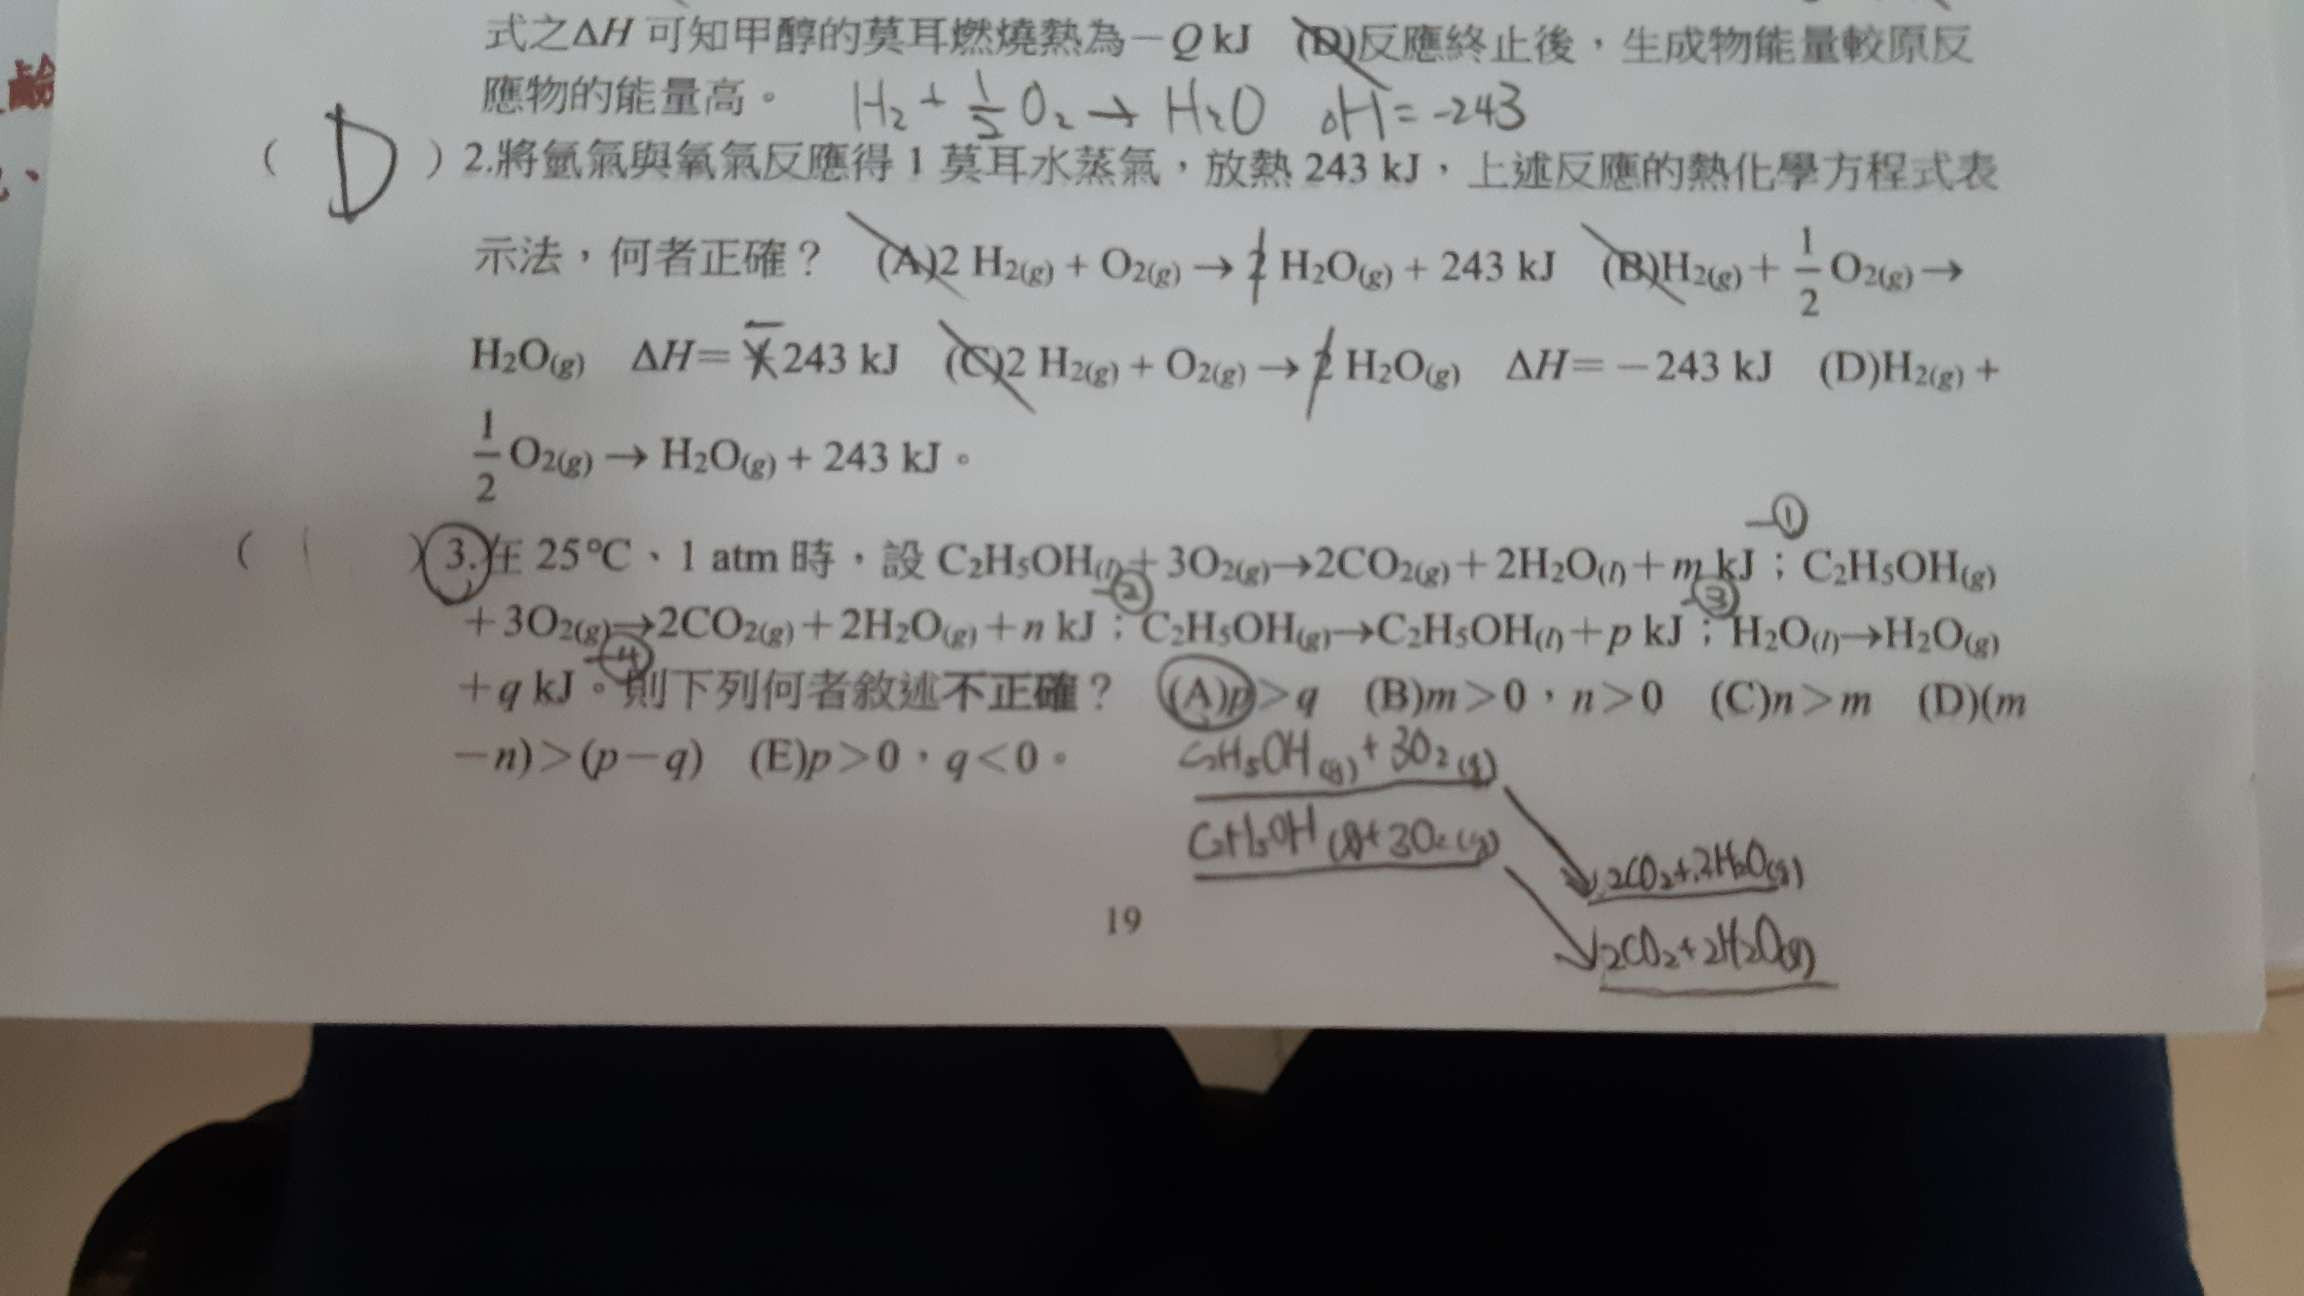 式之ΔH 可知甲醇的莫耳燃燒熱為－Q kJ (D)反應終止後，生成物能量較原反
應物的能量高。 H₂ + 1/2 O₂ → H₂O ΔH = -243
( D ) 2.將氫氣與氧氣反應得 1 莫耳水蒸氣，放熱 243 kJ，上述反應的熱化學方程式表
示法，何者正確？ (A)2 H₂(g) + O₂(g) → 2 H₂O(g) + 243 kJ (B)H₂(g) + 1/2 O₂(g) →
H₂O(g) ΔH= － 243 kJ (C)2 H₂(g) + O₂(g) → 2 H₂O(g) ΔH= －243 kJ (D)H₂(g) +
1/2 O₂(g) → H₂O(g) + 243 kJ。
－①
( ) 3.在 25℃、1 atm 時，設 C₂H₅OH(l)＋3O₂(g)→2CO₂(g)＋2H₂O(l)＋m kJ；C₂H₅OH(g)
－② －③
＋3O₂(g)→2CO₂(g)＋2H₂O(g)＋n kJ；C₂H₅OH(g)→C₂H₅OH(l)＋p kJ；H₂O(l)→H₂O(g)
－④
＋q kJ。則下列何者敘述不正確？ (A)p＞q (B)m＞0，n＞0 (C)n＞m (D)(m
－n)＞(p－q) (E)p＞0，q＜0。
C₂H₅OH(g) + 3O₂(g)
C₂H₅OH(l) + 3O₂(g)
2CO₂+2H₂O(g)
2CO₂+2H₂O
19